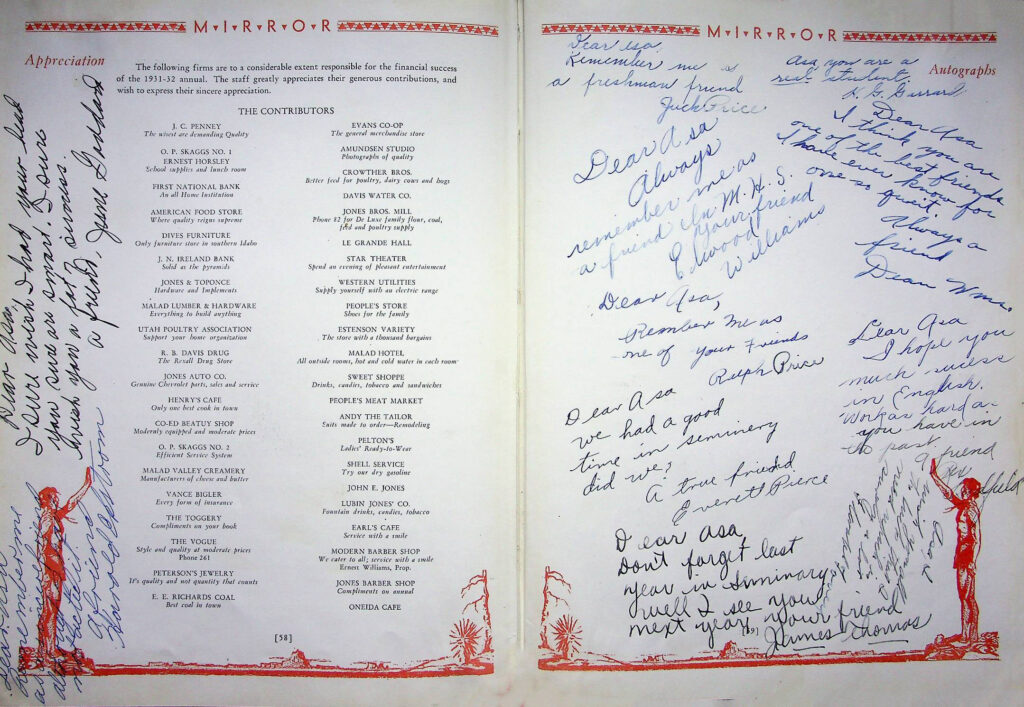 M•I•R•R•O•R
Appreciation
The following firms are to a considerable extent responsible for the financial success
of the 1931-32 annual. The staff greatly appreciates their generous contributions, and
wish to express their sincere appreciation.
THE CONTRIBUTORS
J. C. PENNEY
The wisest are demanding Quality
O. P. SKAGGS NO. 1
ERNEST HORSLEY
School supplies and lunch room
FIRST NATIONAL BANK
An all Home Institution
AMERICAN FOOD STORE
Where quality reigns supreme
DIVES FURNITURE
Only furniture store in southern Idaho
J. N. IRELAND BANK
Solid as the pyramids
JONES & TOPONCE
Hardware and Implements
MALAD LUMBER & HARDWARE
Everything to build anything
UTAH POULTRY ASSOCIATION
Support your home organization
R. B. DAVIS DRUG
The Rexall Drug Store
JONES AUTO CO.
Genuine Chevrolet parts, sales and service
HENRY'S CAFE
Only one best cook in town
CO-ED BEATUY SHOP
Modernly equipped and moderate prices
O. P. SKAGGS NO. 2
Efficient Service System
MALAD VALLEY CREAMERY
Manufacturers of cheese and butter
VANCE BIGLER
Every form of insurance
THE TOGGERY
Compliments on your book
THE VOGUE
Style and quality at moderate prices
Phone 261
PETERSON'S JEWELRY
It's quality and not quantity that counts
E. E. RICHARDS COAL
Best coal in town
EVANS CO-OP
The general merchandise store
AMUNDSEN STUDIO
Photographs of quality
CROWTHER BROS.
Better feed for poultry, dairy cows and hogs
DAVIS WATER CO.
JONES BROS. MILL
Phone 82 for De Luxe family flour, coal,
feed and poultry supply
LE GRANDE HALL
STAR THEATER
Spend an evening of pleasent entertainment
WESTERN UTILITIES
Supply yourself with an electric range
PEOPLE'S STORE
Shoes for the family
ESTENSON VARIETY
The store with a thousand bargains
MALAD HOTEL
All outside rooms, hot and cold water in each room
SWEET SHOPPE
Drinks, candies, tobacco and sandwiches
PEOPLE'S MEAT MARKET
ANDY THE TAILOR
Suits made to order—Remodeling
PELTON'S
Ladies' Ready-to-Wear
SHELL SERVICE
Try our dry gasoline
JOHN E. JONES
LUBIN JONES' CO.
Fountain drinks, candies, tobacco
EARL'S CAFE
Service with a smile
MODERN BARBER SHOP
We cater to all; service with a smile
Ernest Williams, Prop.
JONES BARBER SHOP
Compliments on annual
ONEIDA CAFE
[58]
Dear Asa,
I sure wish I had your head
you sure are smart. I sure
wish you a lot
a friend, June
Dear Asa
Remember me
as
always
a friend
Harold
M•I•R•R•O•R
Autographs
Dear Asa
Remember me
a freshman friend
Jack Price
Asa, you are a
real student.
Dear Asa
Always
remember me as
a friend In M.H.S.
Your friend
Elwood
Williams
Dear Asa
I think you are
one of the best friends
I have ever know for
one so quiet.
Always a
friend
Dean Wms.
Dear Asa,
Rember Me as
one of your Friends
Ralph Price
Dear Asa
I hope you
much
in English.
Work as hard a-
you have in
past
friend
Dear Asa
we had a good
time in seminery
did we?
A true friend
Everett Pierce
Dear Asa,
Don't forget last
year in Siminary
well I see you
next year, your friend
James Thomas